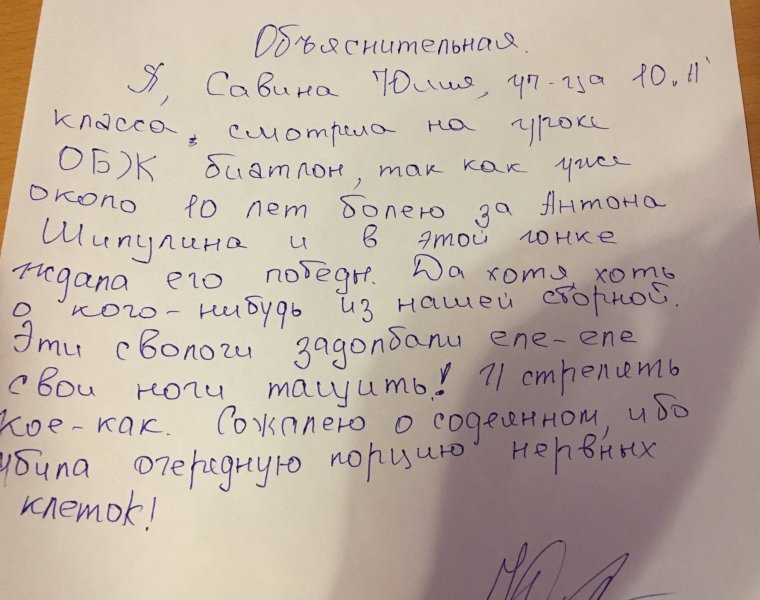 Объяснительная.
Я, Савина Юлия, уч-ца 10.11
класса, смотрела на уроке
ОБЖ биатлон, так как уже
около 10 лет болею за Антона
Шипулина и в этой гонке
ждала его победы. Да хотя, хоть
о кого-нибудь из нашей сборной.
Эти сволочи задолбали еле-еле
свои ноги тащить! И стрелять
кое-как. Сожалею о содеянном, ибо
убила очередную порцию нервных
клеток!